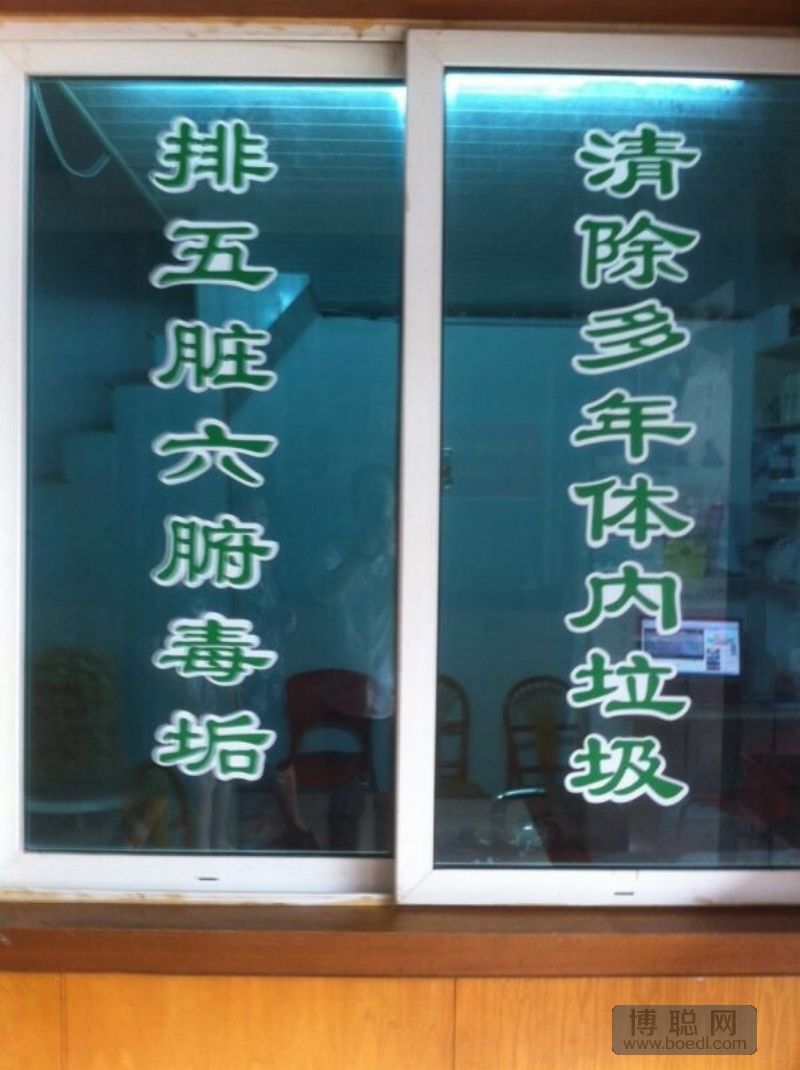 排五脏六腑毒垢
清除多年体内垃圾
博聪网
www.boedl.com